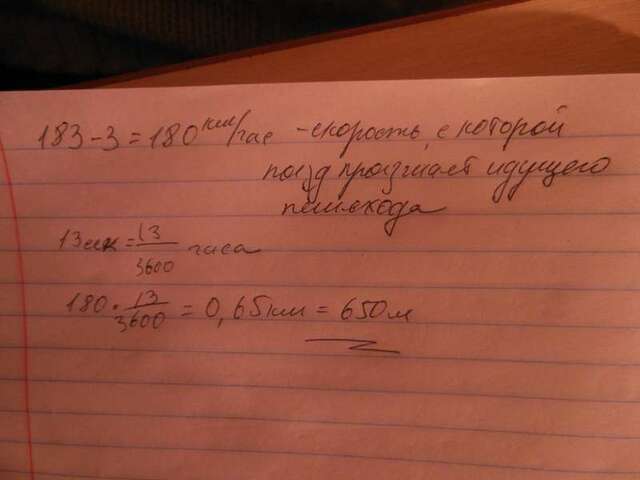 183 - 3 = 180 км/час - скорость, с которой
поезд проезжает идущего
пешехода
13 сек = 13/3600 часа
180 · 13/3600 = 0,65 км = 650 м